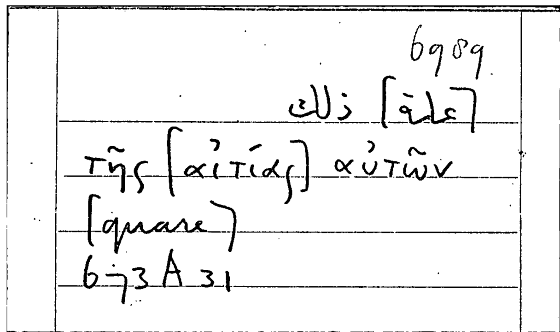 6989
[علة] ذلك
τῆς [αἰτίας] αὐτῶν
[quare]
673 A 31